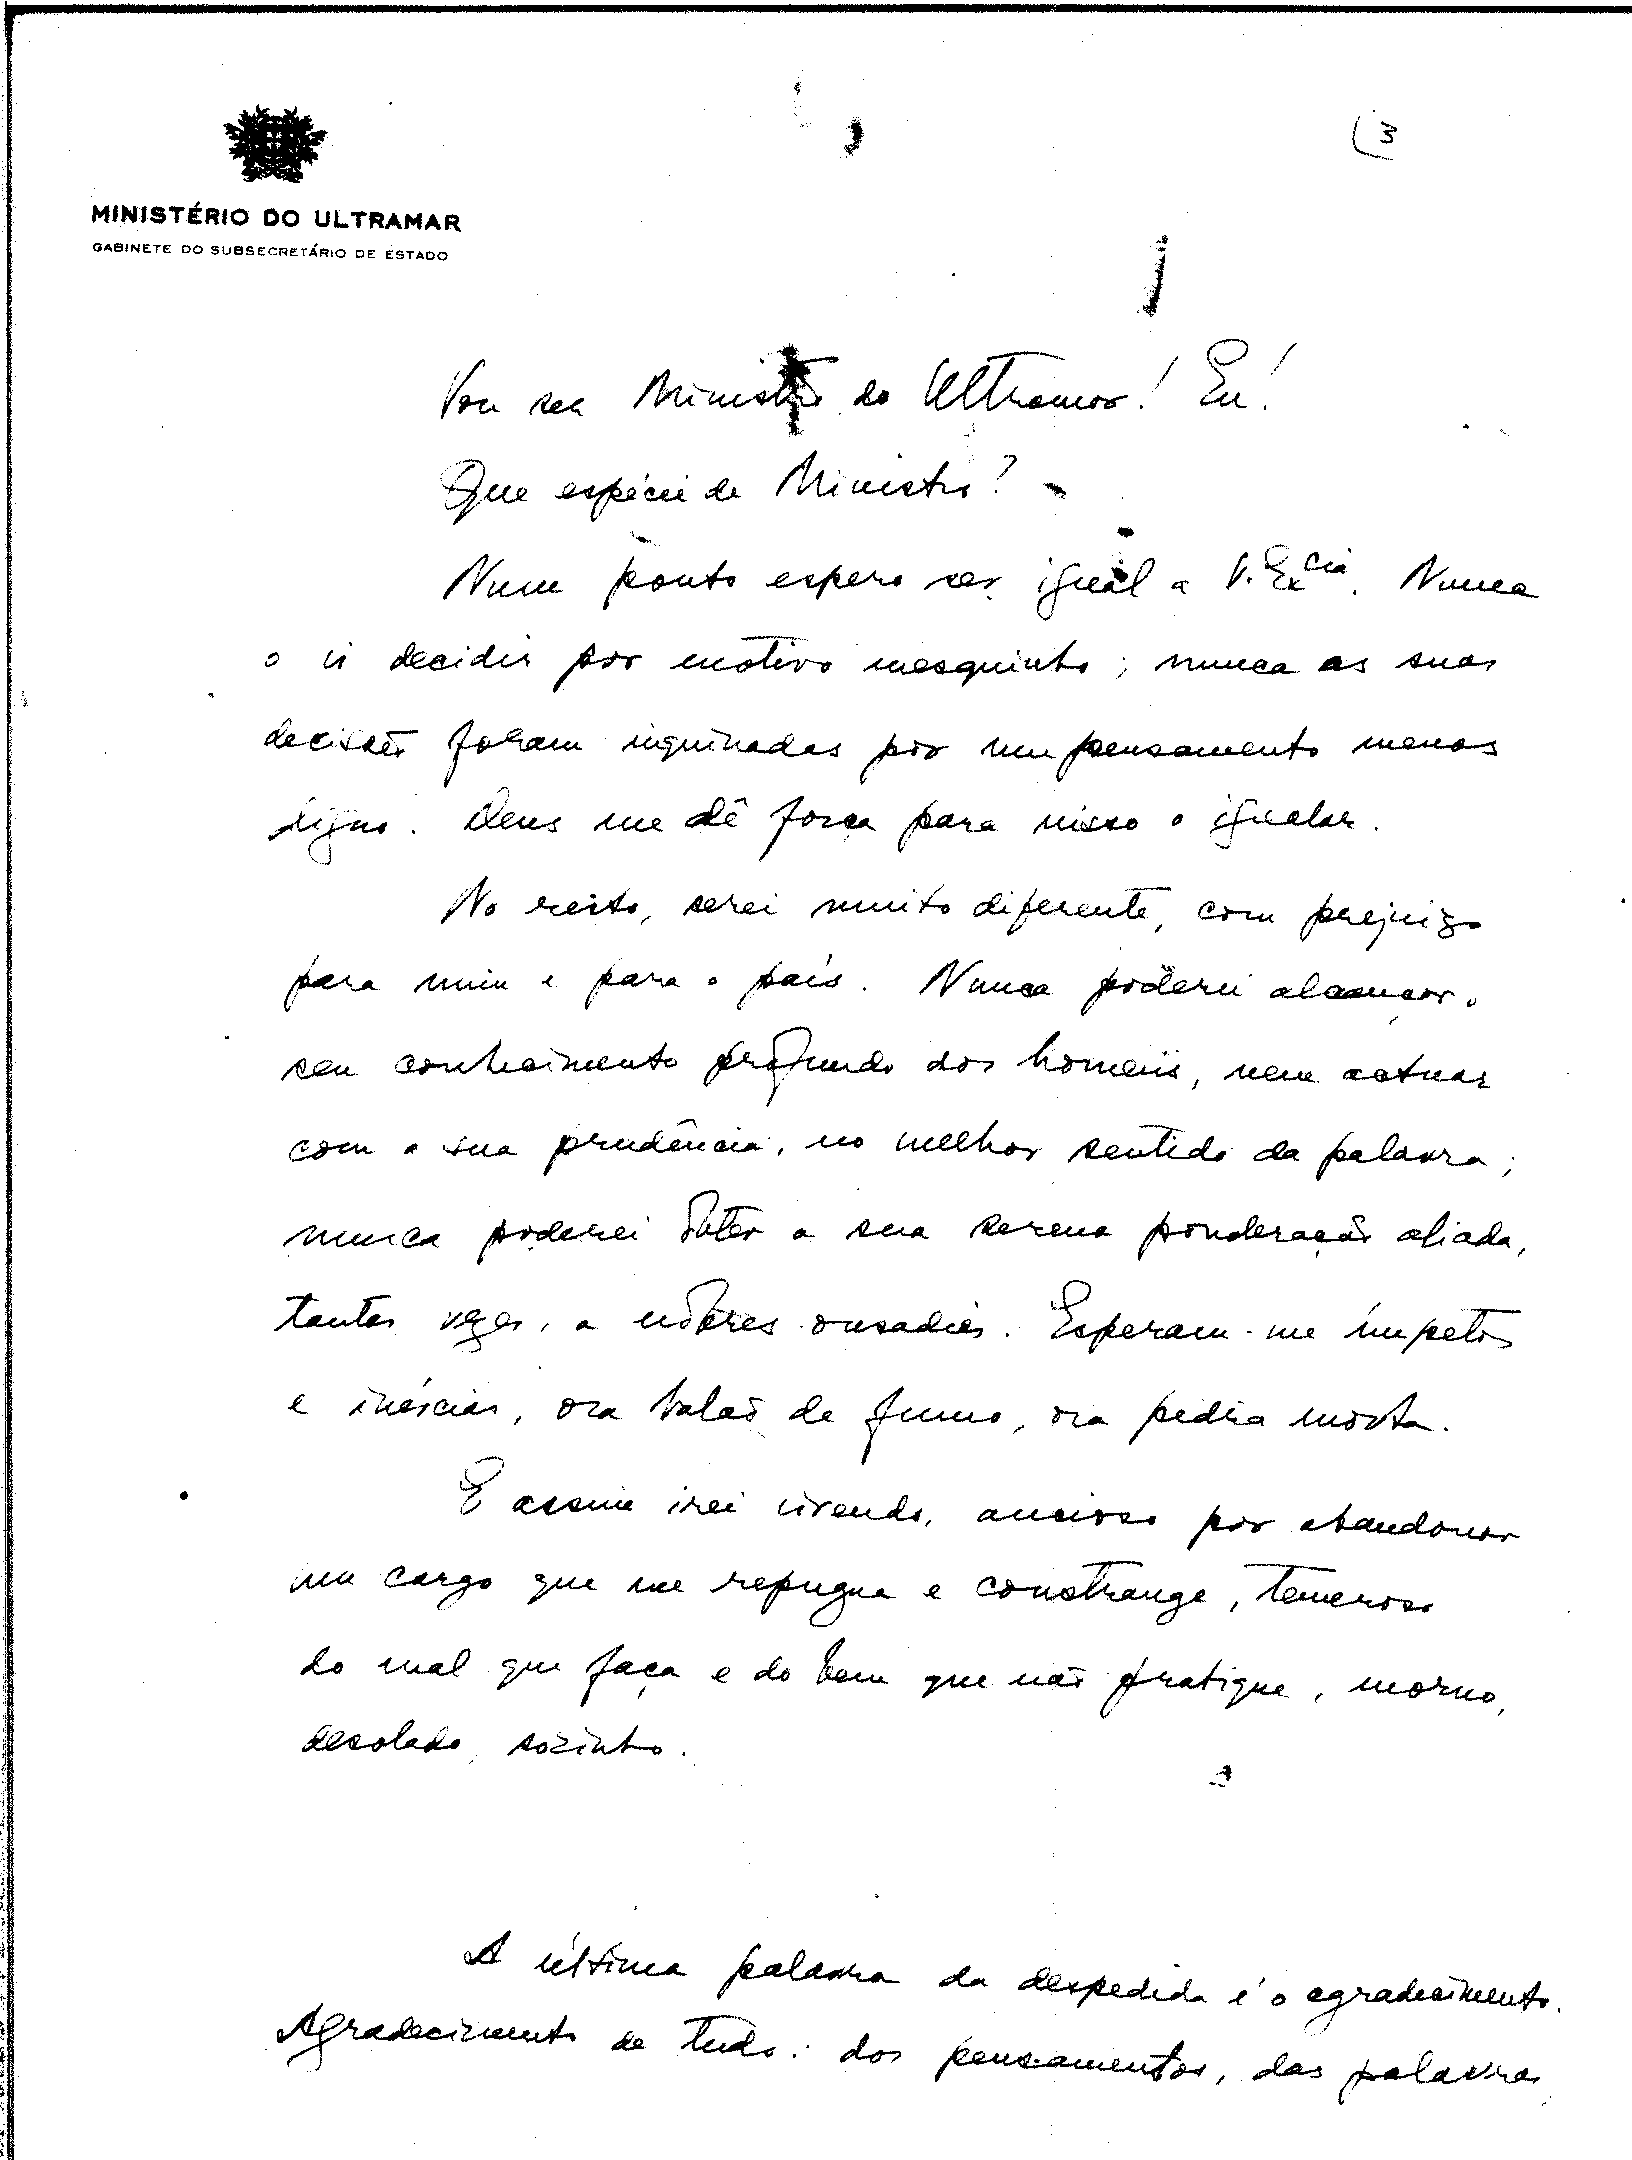 (3
MINISTÉRIO DO ULTRAMAR
GABINETE DO SUBSECRETÁRIO DE ESTADO
Vou ser Ministro do Ultramar! Eu!
Que espécie de Ministro?
Num ponto espero ser igual a V. Excia. Nunca
o vi decidir por motivo mesquinho; nunca as suas
decisões foram inquinadas por um pensamento menos
digno. Deus me dê força para nisso o igualar.
No resto, serei muito diferente, com prejuizo
para mim e para o país. Nunca poderei alcançar o
seu conhecimento profundo dos homens, nem actuar
com a sua prudência, no melhor sentido da palavra;
nunca poderei obter a sua serena ponderação aliada,
tantas vezes, a nobres ousadias. Esperam-me ímpetos
e inércias, ora balão de fumo, ora pedra morta.
E assim irei vivendo, ancioso por abandonar
um cargo que me repugna e constrange, temeroso
do mal que faça e do bem que não pratique, morno,
desolado, sozinho.
A última palavra da despedida é o agradecimento.
Agradecimento de tudo: dos pensamentos, das palavras,